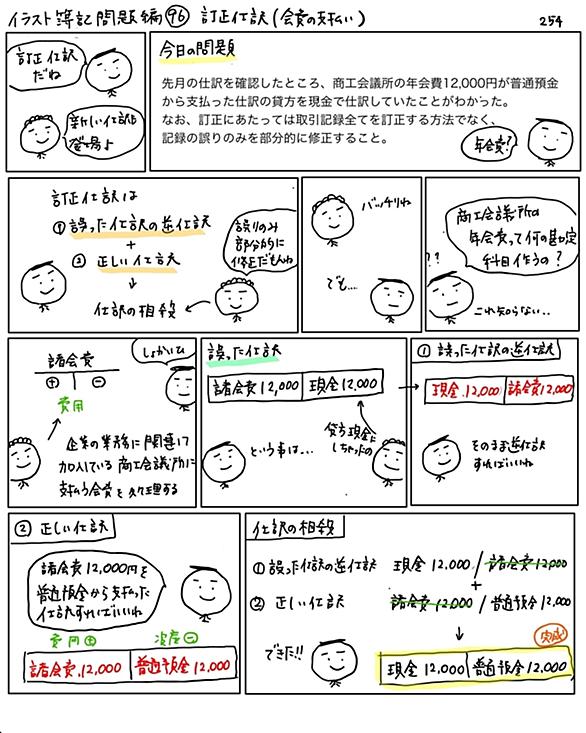 イラスト簿記問題編 96 訂正仕訳(会費の支払い)
254
訂正仕訳
だね
新しい仕訳も
登場よ
今日の問題
先月の仕訳を確認したところ、商工会議所の年会費12,000円が普通預金
から支払った仕訳の貸方を現金で仕訳していたことがわかった。
なお、訂正にあたっては取引記録全てを訂正する方法でなく、
記録の誤りのみを部分的に修正すること。
年会費?
訂正仕訳は
① 誤った仕訳の逆仕訳
+
② 正しい仕訳
↓
仕訳の相殺
誤りのみ
部分的に
修正だもんね
バッチリね
でも…
商工会議所の
年会費って何の勘定
科目作うの?
??
これ知らない..
諸会費
⊕ ⊖
費用
しょかいひ
企業の業務に関連して
加入している商工会議所に
支払う会費を処理する
誤った仕訳
諸会費 12,000 現金 12,000
という事は…
貸方現金に
しちゃったの
① 誤った仕訳の逆仕訳
現金 12,000 諸会費 12,000
そのまま逆仕訳
すればいいね
② 正しい仕訳
諸会費12,000円を
普通預金から支払った
仕訳すればいいね
費用⊕ 資産⊖
諸会費 12,000 普通預金 12,000
仕訳の相殺
① 誤った仕訳の逆仕訳 現金 12,000 / 諸会費 12,000
+
② 正しい仕訳 諸会費 12,000 / 普通預金 12,000
↓
完成!
できた!!
現金 12,000 普通預金 12,000